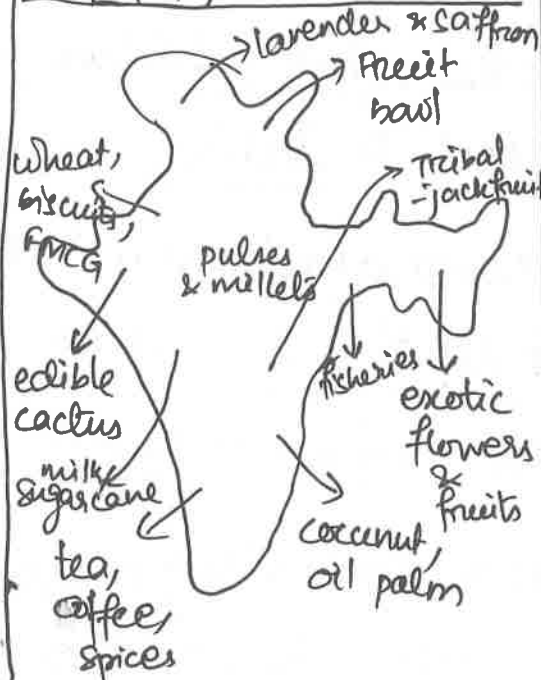 lavender & saffron
Fruit
bowl
wheat,
biscuits,
FMCG
Tribal
-jackfruit
pulses
& millets
edible
cactus
fisheries
exotic
flowers
&
fruits
milk
sugarcane
coconut,
oil palm
tea,
coffee,
spices